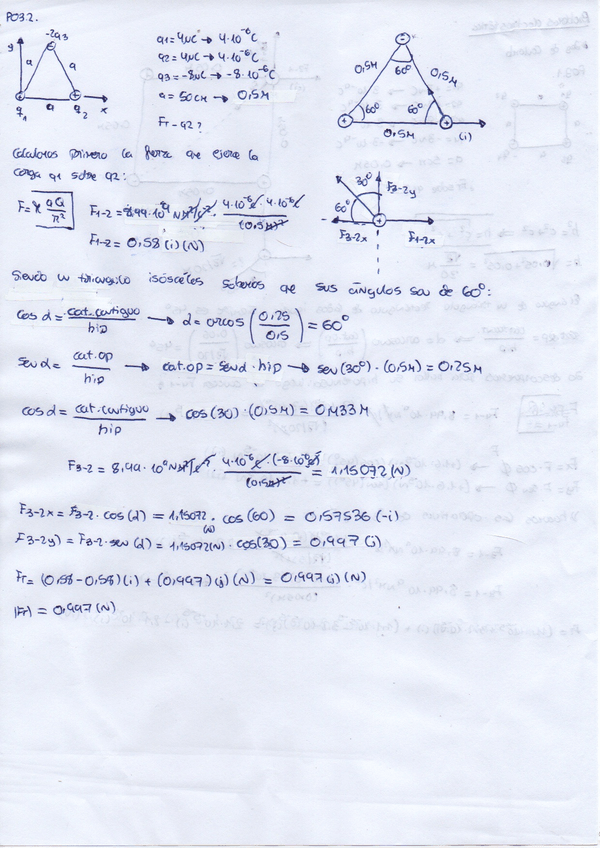 PO3.2.
y
-2q3
a
a
q1
a
q2
x
q1 = 4μC → 4·10⁻⁶C
q2 = 4μC → 4·10⁻⁶C
q3 = -8μC → -8·10⁻⁶C
a = 50cm → 0,5M
Fr - q2?
0,5M
60°
0,5M
60°
60°
0,5M
(i)
Calculamos primero la fuerza que ejerce la
carga q1 sobre q2:
F = K qQ/r²
F1-2 = 8,99·10⁹ N M²/C² · 4·10⁻⁶C · 4·10⁻⁶C/(0,5M)²
F1-2 = 0,58 (i) (N)
30°
F3-2y
60°
F3-2x
F1-2x
Siendo un triangulo isósceles sabemos que sus ángulos son de 60°:
cos α = cat.contiguo/hip → α = arcos (0,25/0,5) = 60°
sen α = cat.op/hip → cat.op = sen α · hip → sen (30°) · (0,5M) = 0,25M
cos α = cat.contiguo/hip → cos (30) · (0,5M) = 0,433M
F3-2 = 8,99·10⁹ N M²/C² · 4·10⁻⁶C · (-8·10⁻⁶C)/(0,5M)² = 1,15072 (N)
F3-2x = F3-2 · cos (α) = 1,15072 (N) · cos (60) = 0,57536 (-i)
F3-2y) = F3-2 · sen (α) = 1,15072(N) · cos(30) = 0,997 (j)
Fr = (0,58 - 0,58) (i) + (0,997) (j) (N) = 0,997 (j) (N)
|Fr| = 0,997 (N)